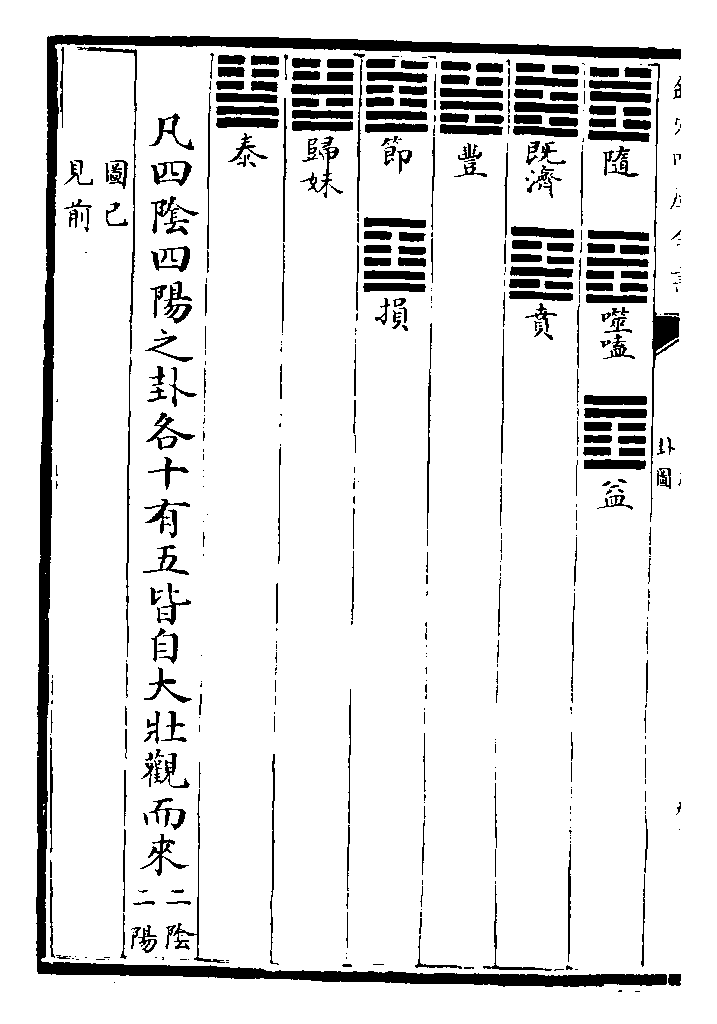 卦圖
隨 噬嗑 益
既濟 賁
豐
節 損
歸妹
泰
凡四陰四陽之卦各十有五皆自大壯觀而來二陰二陽
圖已
見前